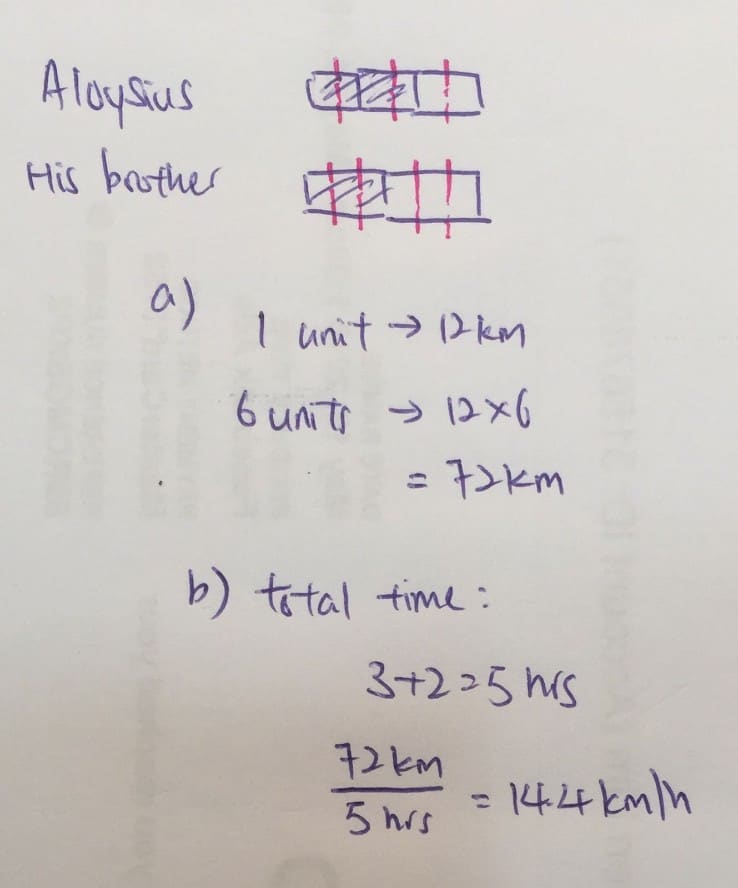 Aloysius
His brother
a) 1 unit → 12 km
6 units → 12 × 6
= 72 km
b) total time :
3 + 2 = 5 hrs
72 km
5 hrs
= 14.4 km/h